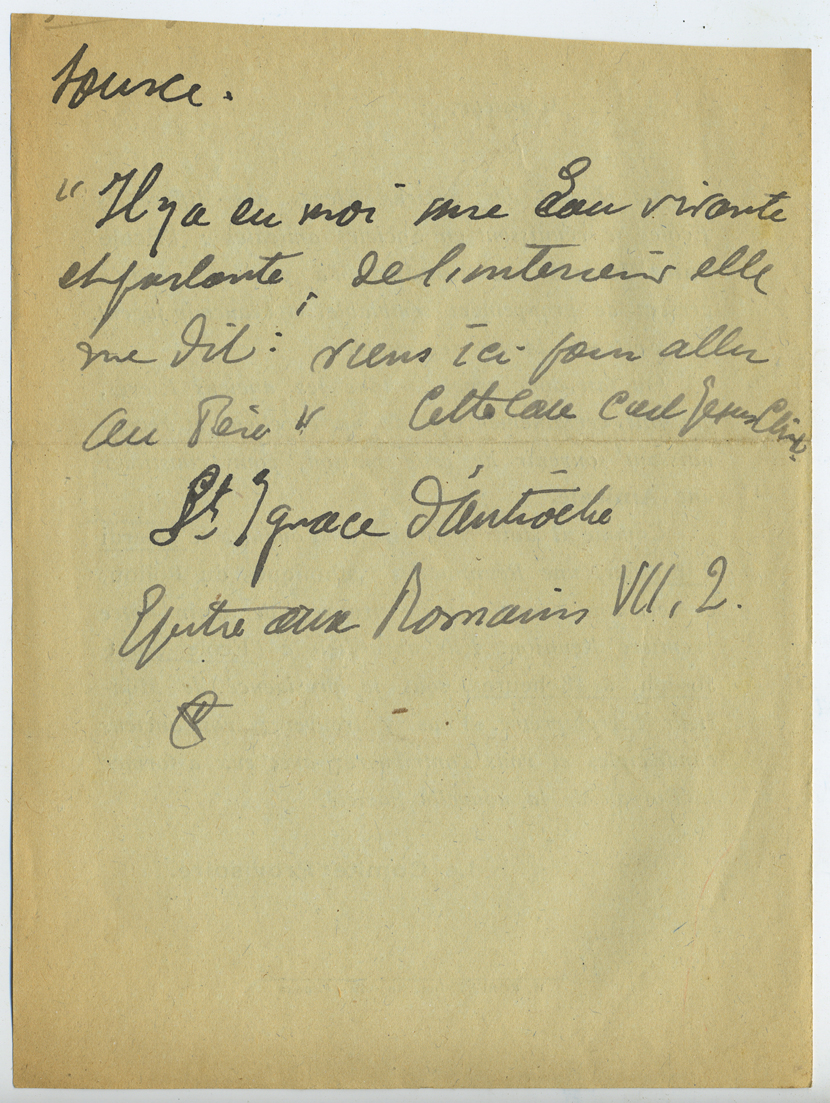 Source.
"Il y a en moi une Eau vivante
et parlante, de l'interieur elle
me dit : viens ici pour aller
au Père" Cette Eau c'est Jesus Christ.
St Ignace d'Antioche
Epitre aux Romains VII, 2.